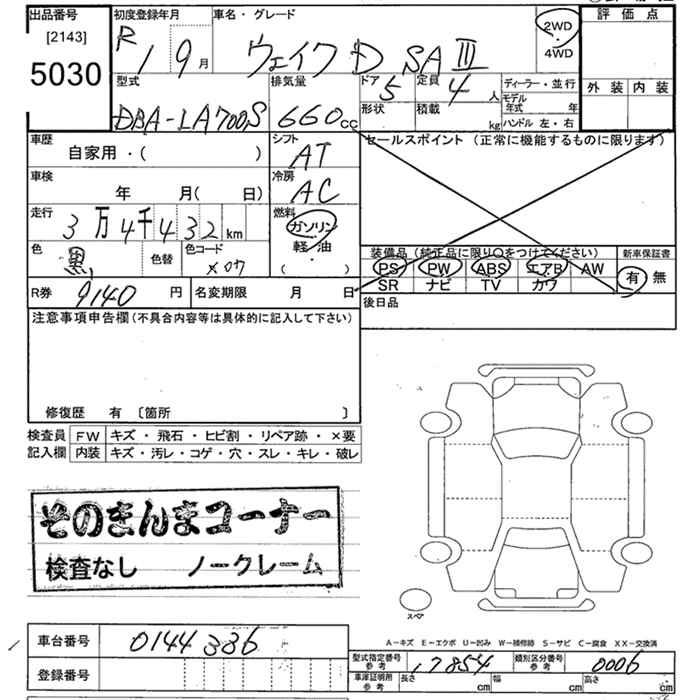 出品番号
[2143]
5030
初度登録年月
R 1 9 月
車名・グレード
ウェイク D SAⅢ
2WD
・
4WD
評価点
外装 内装
型式
DBA-LA700S
排気量
660 cc
ドア 5
形状
定員 4 人
積載 kg
ディーラー・並行
モデル年式 年
ハンドル 左・右
車歴
自家用・( )
シフト
AT
セールスポイント (正常に機能するものに限ります)
車検
年 月( 日)
冷房
AC
走行
3万4千432 km
燃料
ガソリン
軽・油
( )
色
黒
色替
色コード
X07
装備品 (純正品に限り○をつけてください)
新車保証書
PS PW ABS エアB AW
SR ナビ TV カワ
有 無
R券 9140 円
名変期限 月 日
後日品
注意事項申告欄 (不具合内容等は具体的に記入して下さい)
修復歴 有 〔箇所 〕
検査員 FW キズ・飛石・ヒビ割・リペア跡・×要
記入欄 内装 キズ・汚レ・コゲ・穴・スレ・キレ・破レ
そのまんまコーナー
検査なし ノークレーム
スペア
A−キズ E−エクボ U−凹み W−補修跡 S−サビ C−腐食 XX−交換済
車台番号 0144386
登録番号
型式指定番号 参考 17854
類別区分番号 参考 0006
車庫証明用 参考 長さ cm 幅 cm 高さ cm